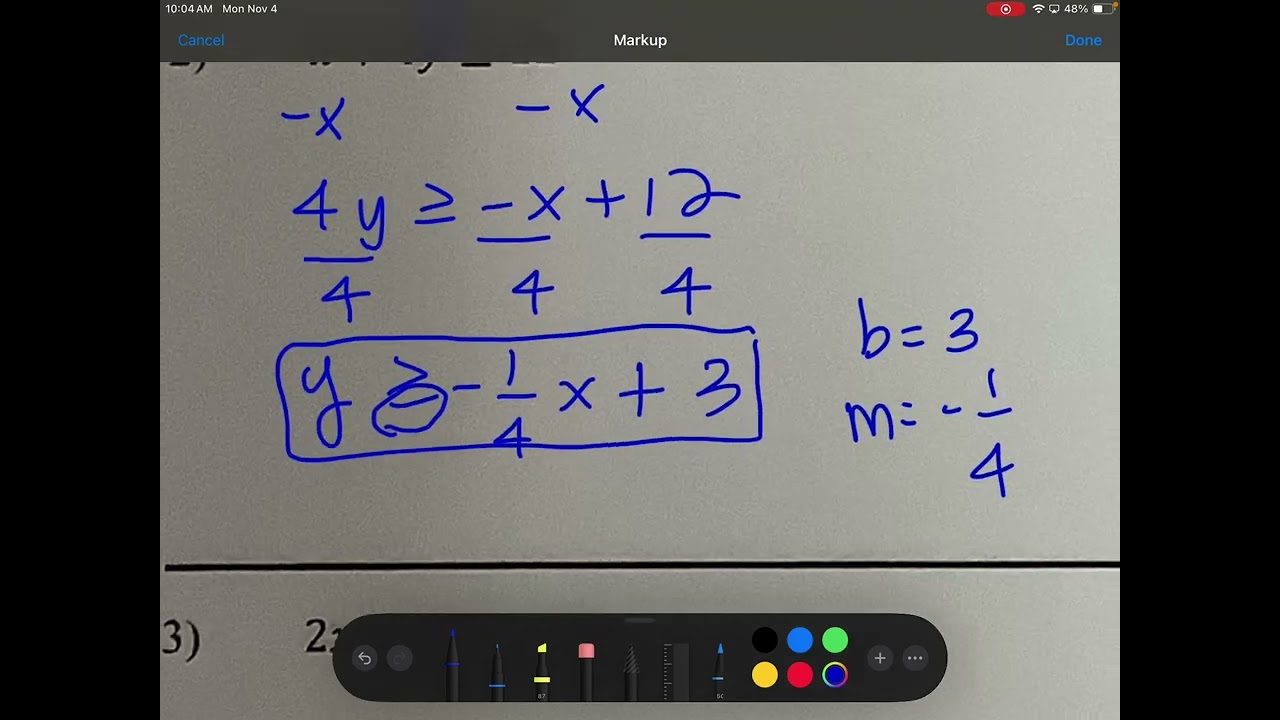 10:04 AM Mon Nov 4
48%
Cancel
Markup
Done
2)
-x - x
4y ≥ -x + 12
4 4 4
y ≥ - 1/4 x + 3
b = 3
m = - 1/4
3) 2x
87
50